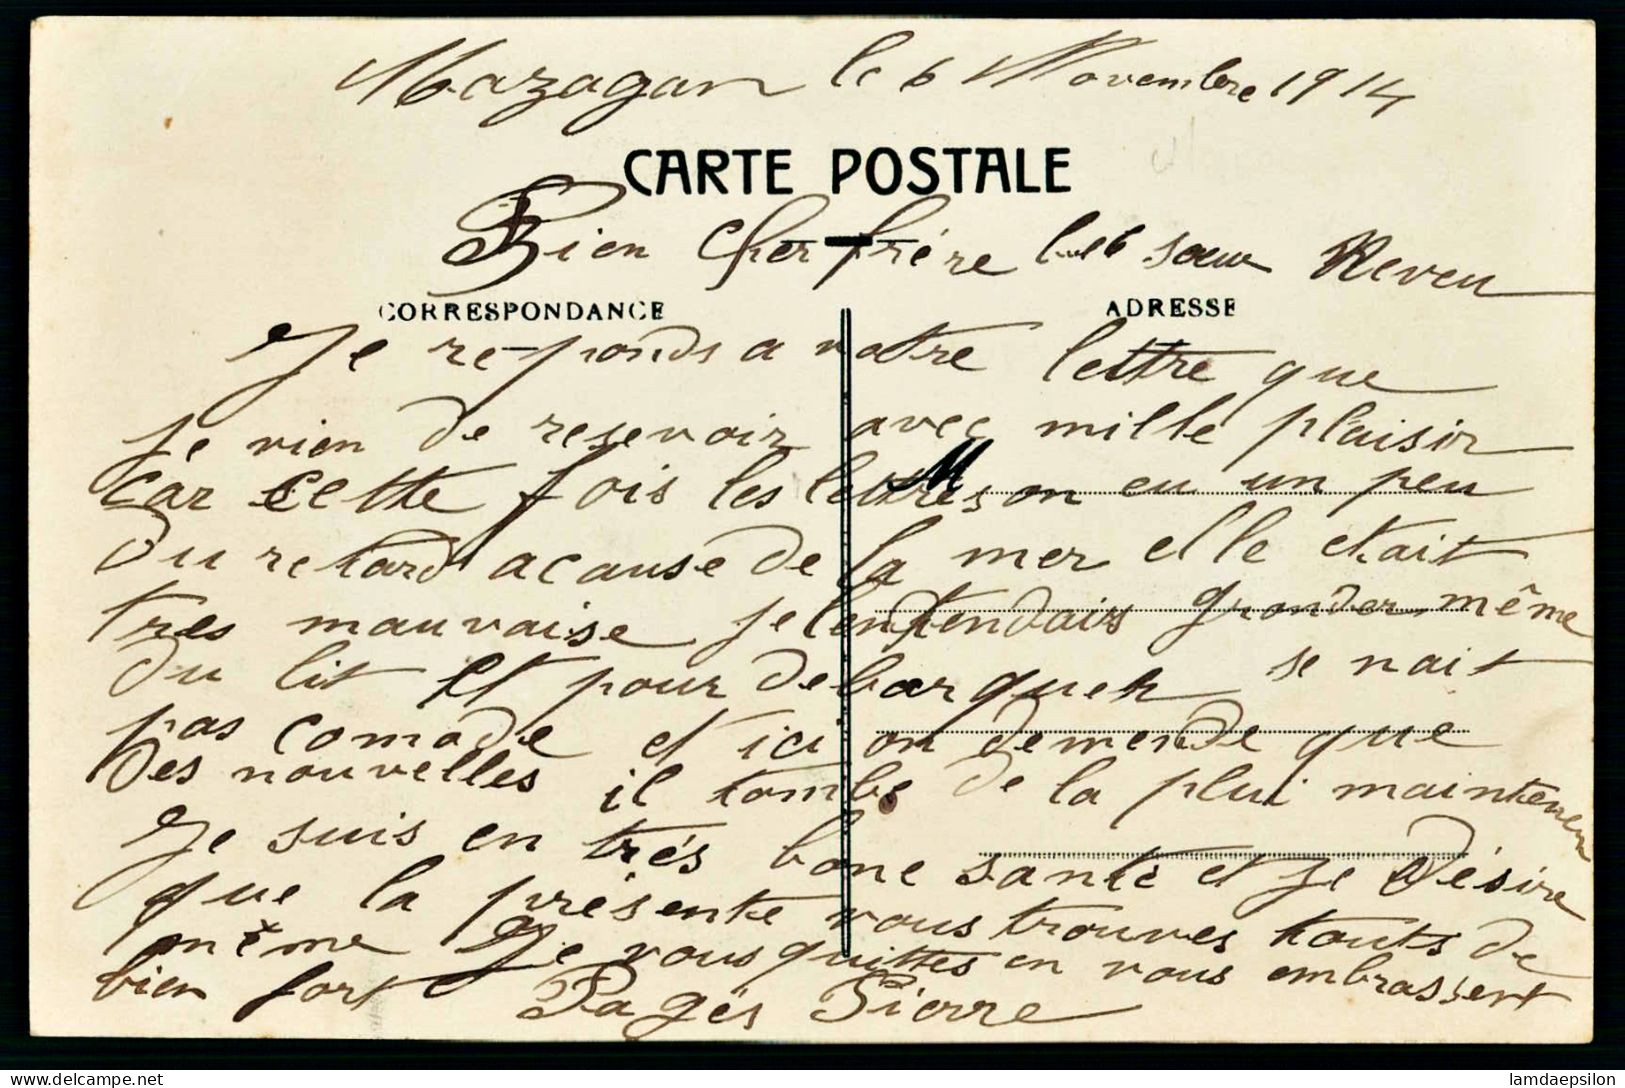 Mazagan le 6 Novembre 1914
CARTE POSTALE
Bien Cher frère sœur Neveu
CORRESPONDANCE ADRESSE
Je reponds a votre lettre que
je vien de resevoir avec mille plaisir
car cette fois les lettres on eu un peu
M
du retard a cause de la mer elle etait
tres mauvaise je lentendais gronder même
du lit et pour debarquer se nait
pas comode et ici on demende que
des nouvelles il tombe de la plui maintenen
Je suis en trés bone santé et je désire
que la présente vous trouves touts de
même Je vous quittes en vous embrassent
bien fort Pagés Pierre
lamdaepsilon
www.delcampe.net